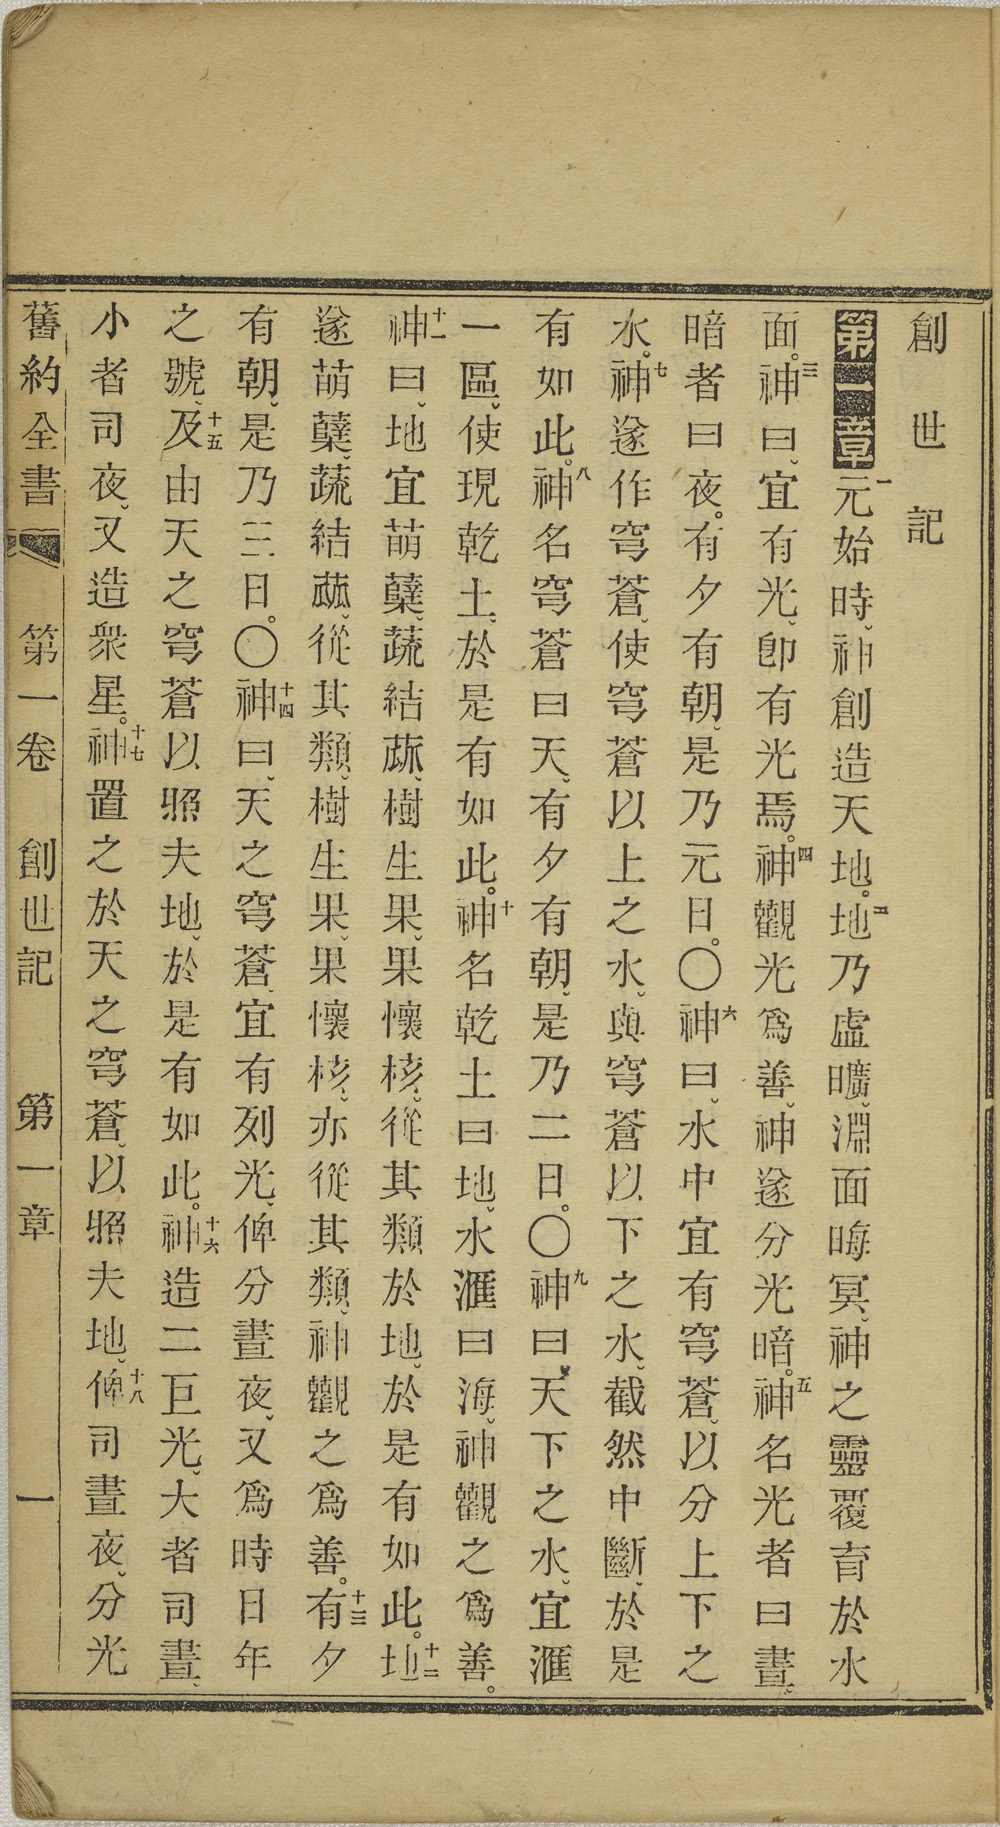 創世記
第一章 一元始時、神創造天地。二地乃虛曠、淵面晦冥、神之靈覆育於水
面。三神曰、宜有光、卽有光焉。四神觀光爲善、神遂分光暗。五神名光者曰晝、
暗者曰夜。有夕有朝、是乃元日。〇六神曰、水中宜有穹蒼、以分上下之
水。七神遂作穹蒼、使穹蒼以上之水、與穹蒼以下之水、截然中斷、於是
有如此。八神名穹蒼曰天、有夕有朝、是乃二日。〇九神曰、天下之水、宜滙
一區、使現乾土、於是有如此。十神名乾土曰地、水滙曰海、神觀之爲善。
十一神曰、地宜萌蘖、蔬結蓏、樹生果、果懷核、從其類於地、於是有如此。十二地
遂萌蘖、蔬結蓏、從其類、樹生果、果懷核、亦從其類、神觀之爲善。十三有夕
有朝、是乃三日。〇十四神曰、天之穹蒼、宜有列光、俾分晝夜、又爲時日年
之號、十五及由天之穹蒼以照夫地、於是有如此。十六神造二巨光、大者司晝、
小者司夜、又造衆星。十七神置之於天之穹蒼、以照夫地、十八俾司晝夜、分光
舊約全書 第一卷 創世記 第一章 一